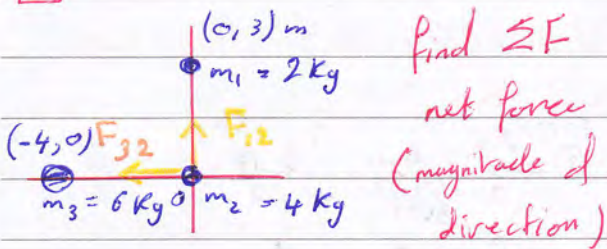 (0, 3) m
m₁ = 2 Kg
find ΣF
net force
(magnitude d
direction)
F₁₂
(-4, 0)
F₃₂
m₃ = 6 Kg
0
m₂ = 4 Kg